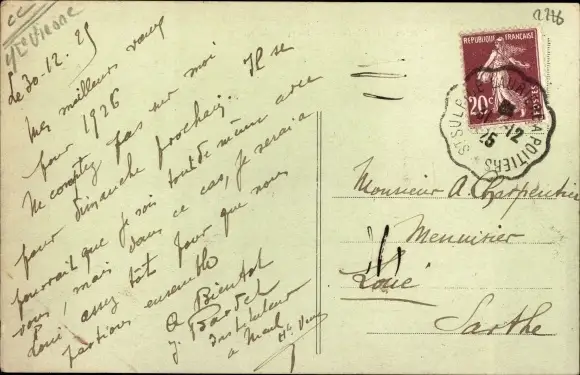 cc
Hte Vienne
2276
Le 30.12.25
Mes meilleurs vœux
pour 1926
Ne comptez pas sur moi
pour dimanche prochain. Il se
pourrait que je sois tout de même avec
vous, mais dans ce cas, je serai à
Loué assez tôt pour que nous
partions ensemble
A Bientôt
J. Bardet
Instituteur
à
Hte Vienne
REPUBLIQUE FRANÇAISE
20c
POSTES
ST SULPICE A POITIERS
31
12
25
Monsieur A Charpentier
Menuisier
Loué
Sarthe